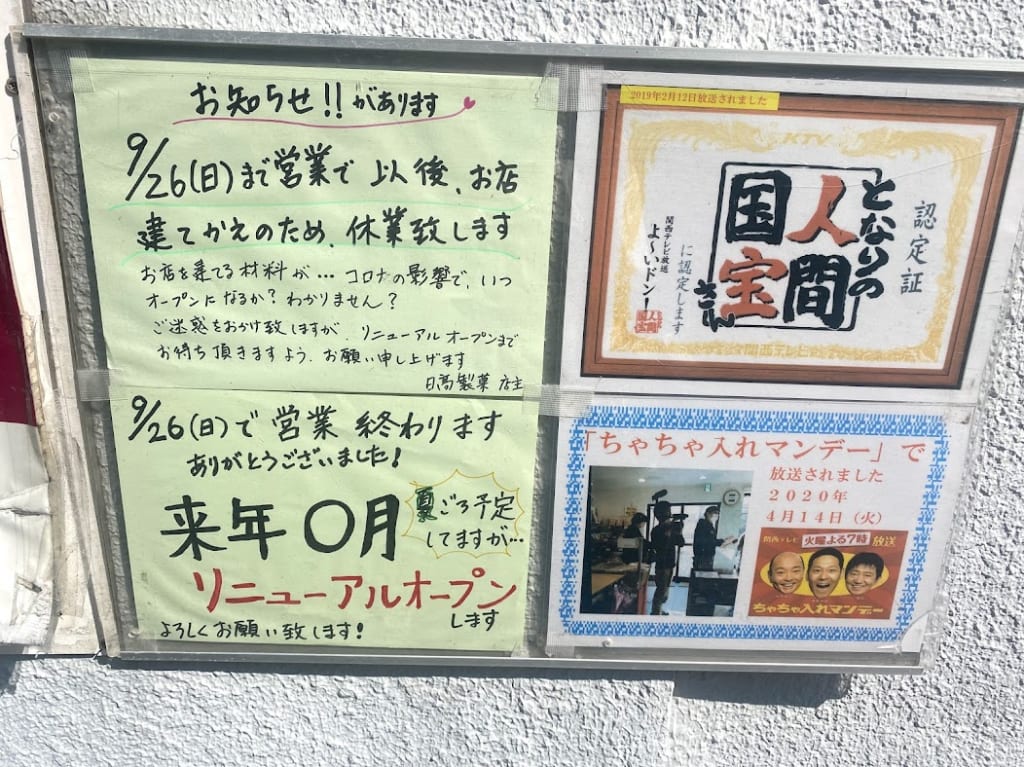 お知らせ!!があります
9/26(日)まで営業で以後、お店
建てかえのため、休業致します
お店を建てる材料が…コロナの影響で、いつ
オープンになるか?わかりません?
ご迷惑をおかけ致しますが リニューアルオープンまで
お待ち頂きますよう、お願い申し上げます
日高製菓 店主
9/26(日)で営業終わります
ありがとうございました!
来年〇月
夏ごろ予定
してますが…
リニューアルオープン
します
よろしくお願い致します!
2019年2月12日放送されました
KTV
認定証
となりの
人間
国宝
さん
に認定します
関西テレビ放送
よ〜いドン!
となりの
人間
国宝
関西テレビ
「ちゃちゃ入れマンデー」で
放送されました
2020年
4月14日(火)
関西テレビ 火曜よる7時 放送
ちゃちゃ入れマンデー